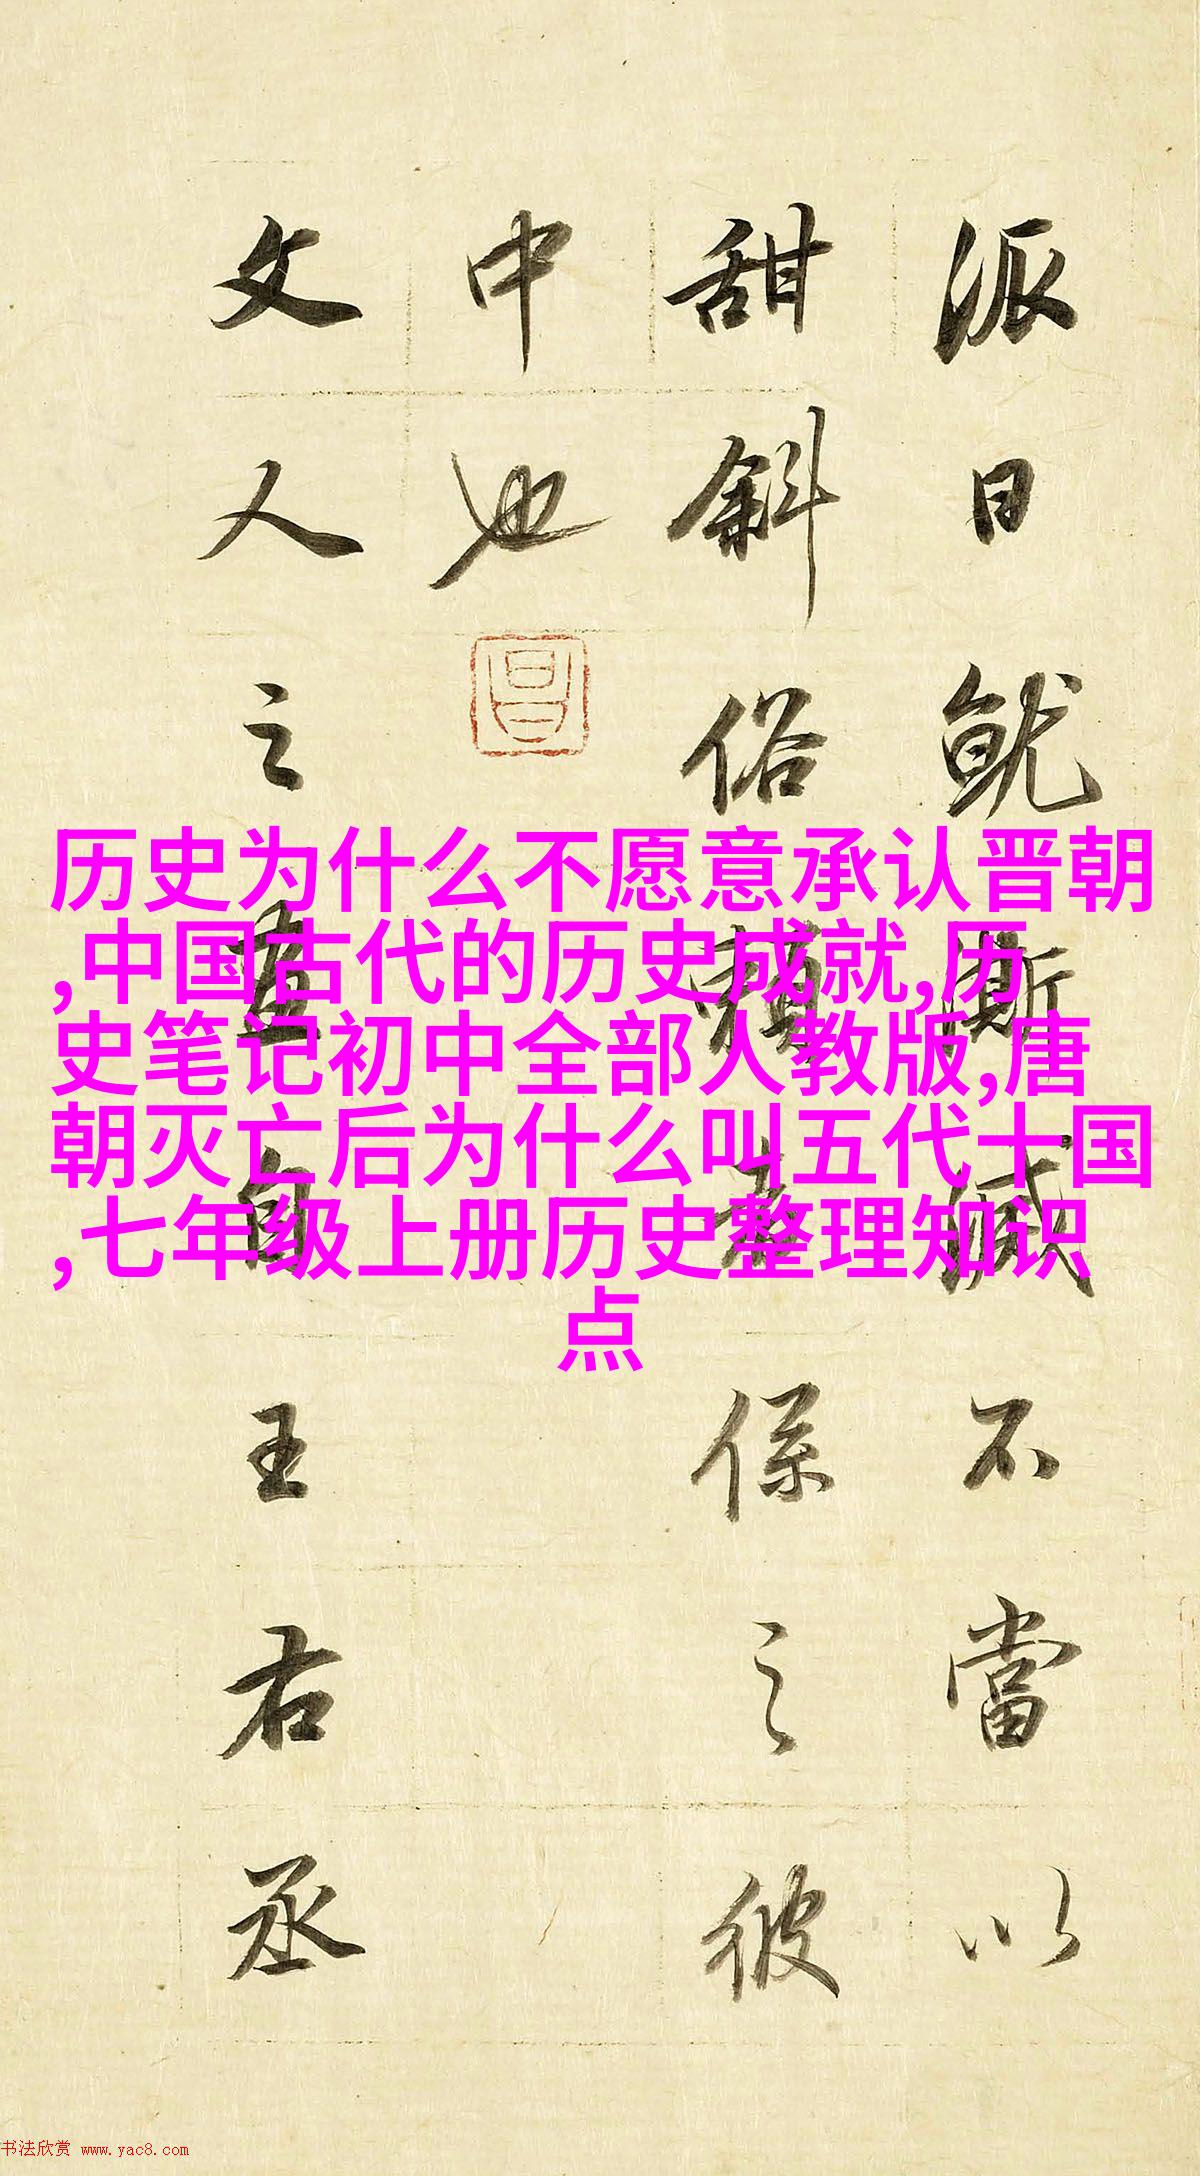 历史为什么不愿意承认晋朝
,中国古代的历史成就,历
史笔记初中全部人教版,唐
朝灭亡后为什么叫五代十国
,七年级上册历史整理知识
点
派日就澌滅不當以
甜斜俗賴者係之彼
中也
文人之畫自王右丞
书法欣赏 www.yac8.com